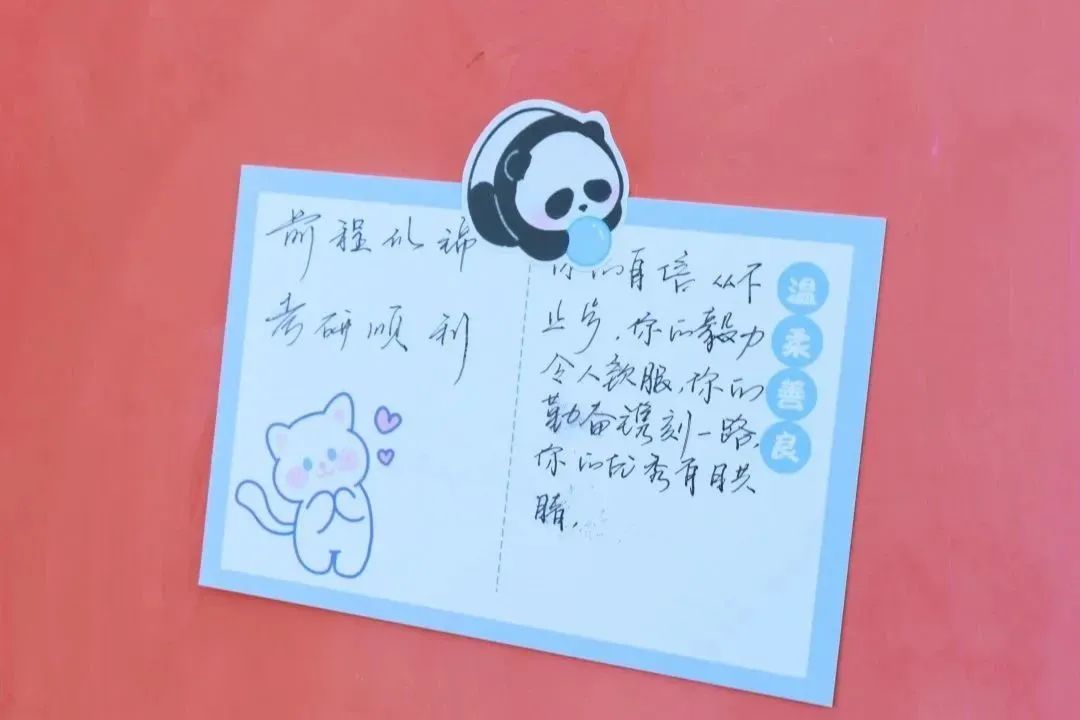 前程似锦
考研顺利
你的自信从不
止步，你的毅力
令人服，你的
勤奋镌刻一路，
你的优秀有目共
睛，
温
柔
善
良